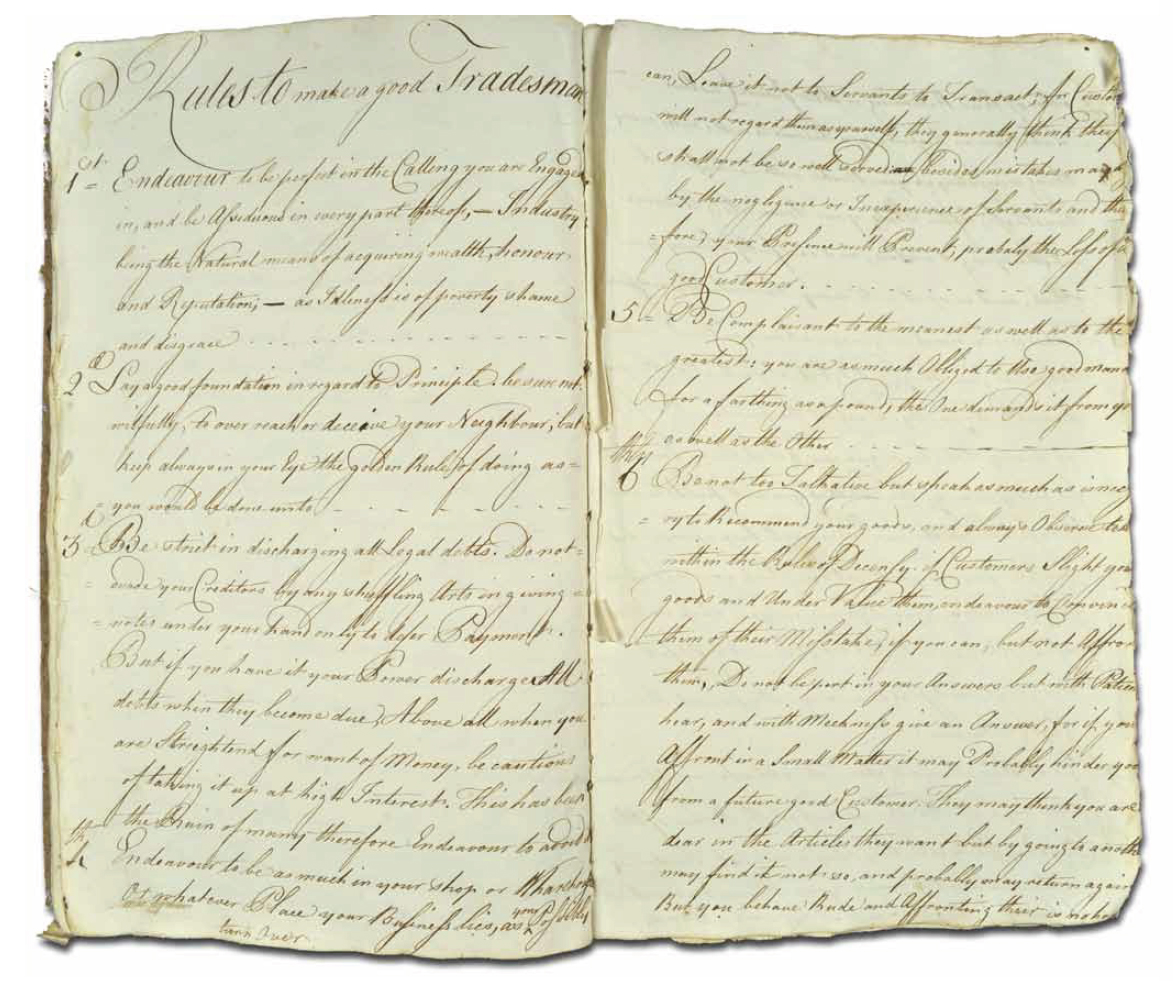 Rules to make a good Tradesman
1st = Endeavour to be perfect in the Calleng you are Engage
in, and be Assiduous in every part thereof, — Industry
being the Natural means of acquiring wealth, honour
and Reputation; — as Idleness is of poverty shame
and disgrace - - - - - - - - - - - - -
2d Lay a good foundation in regard to Principle: be sure not
wilfully, to over reach or deceive your Neighbour; but
keep always in your Eye the golden Rule of doing as =
= you would be done unto - - - - - - -
3 = Be strict in discharging all Legal debts. Do not =
= evade your Creditors by any shuffling Arts in giving =
= notes under your hand only to defer Payment.
But if you have it your Power discharge All
debts when they become due, Above all when you
are Streightend for want of Money, be cautious
of taking it up at high Interest. This has been
the Ruin of many therefore Endeavour to avoid
4th Endeavour to be as much in your shop or
Or whatever Place your Business lies, as you Possibly
turn Over
can, Leave it not to Servants to Transact; for Custom
will not regard them as yourself, they generally think they
shall not be so well served besides mistakes may
by the negligence or Inexperience of Servants and the
= fore, your Presence will Prevent, probaly the Loss of a
good Customer. - - - - - - - - -
5 = Be Complaisant to the meanest as well as to the
greatest: you are as much Obliged to Use good mann
for a farthing as a pound; the One demands it from yo
as well as the Other - - - - - -
6thly Be not too Talkative but speak as much as is nece
= ry to Recommend your goods, and always Observe to
within the Rules of Decency. if Customers Slight you
goods and Under Value them, endeavour to Convince
them of their Misstake, if you can, but not Affron
them, Do not be pert in your Answers but with Patien
hear, and with Meekness give an Answer, for if you
Affront in a Small Matter it may Probably hinder you
from a future good Customer. They may think you are
dear in the Articles they want but by going to anothe
may find it not so, and probably may return again
But you behave Rude and Affronting their is no ho